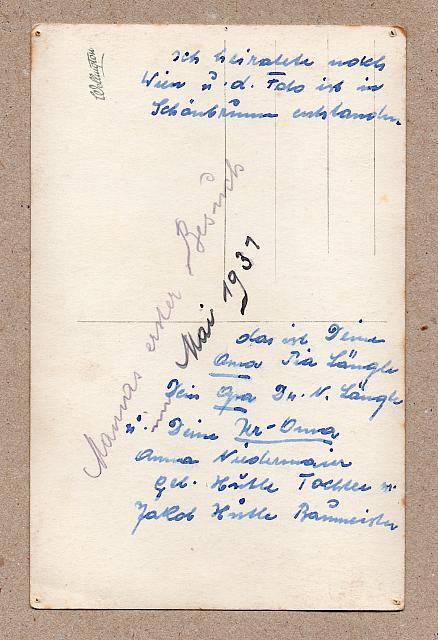 Wellington
ich heiratete nach
Wien u. d. Foto ist in
Schönbrunn entstanden.
Mamas erster Besuch
Mai 1931
das ist Deine
Oma Pia Längle
Dein Opa Dr. N. Längle
u. Deine Ur-Oma
Anna Niedermaier
geb. Hütle Tochter v.
Jakob Hütle Baumeister